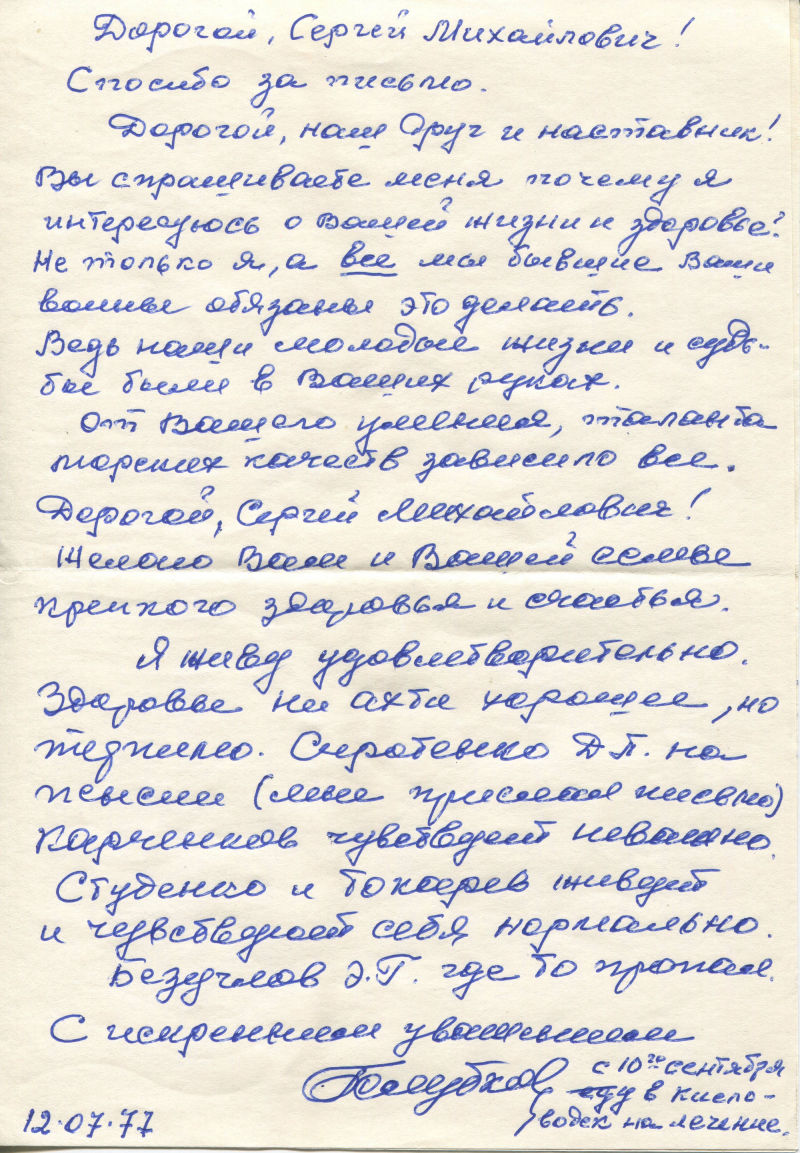 Дорогой, Сергей Михайлович!
Спосибо за письмо.
Дорогой, наш Друг и наставник!
Вы спрашиваете меня почему я
интересуюсь о Вашей жизни и здоровье?
Не только я, а все мы бывшие Ваши
воины обязаны это делать.
Ведь наши молодые жизни и судь-
бы были в Ваших руках.
От Вашего умения, таланта
морских качеств зависило все.
Дорогой, Сергей Михайлович!
Желаю Вам и Вашей семье
крепкого здоровья и счастья.
Я живу удовлетворительно.
Здоровье ни ахти хорошее, но
терпимо. Сиротенко Д.П. на
пенсии (мне прислал письмо)
Карченков чувствует неважно.
Студенко и Токарев живут
и чувствуют себя нормально.
Безуглов Э.Г. где то пропал.
С искренним уважением
с 10го сентября
еду в Кисло-
водск на лечение.
12.07.77